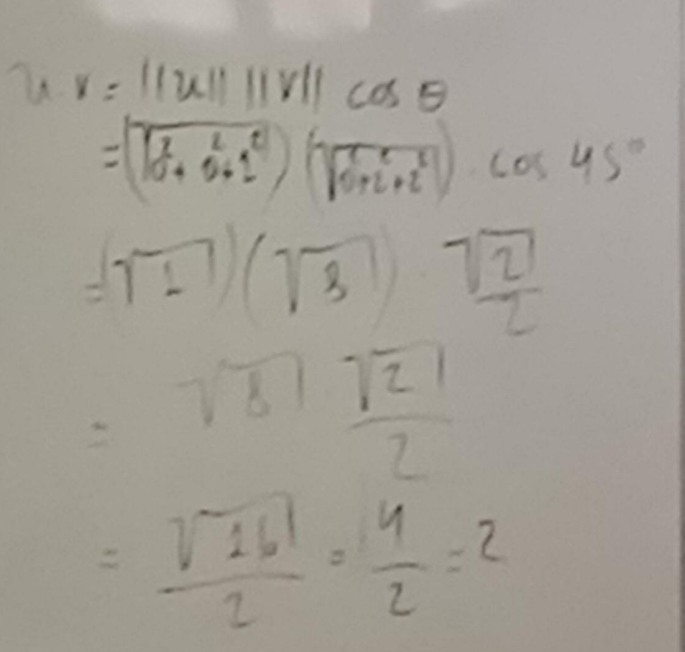 u v = ||u|| ||v|| cos θ
= (√0²+0²+1²) (√0²+2²+2²) · cos 45°
= (√1) (√8) · √2/2
= √8 √2/2
= √16/2 = 4/2 = 2